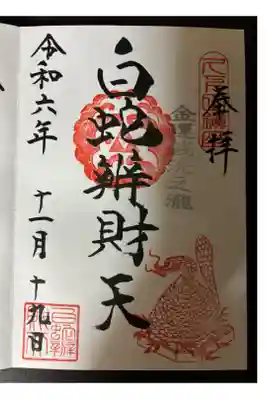 奉拝
金運
之瀧
白蛇辨財天
令和六年
十一月
十九日